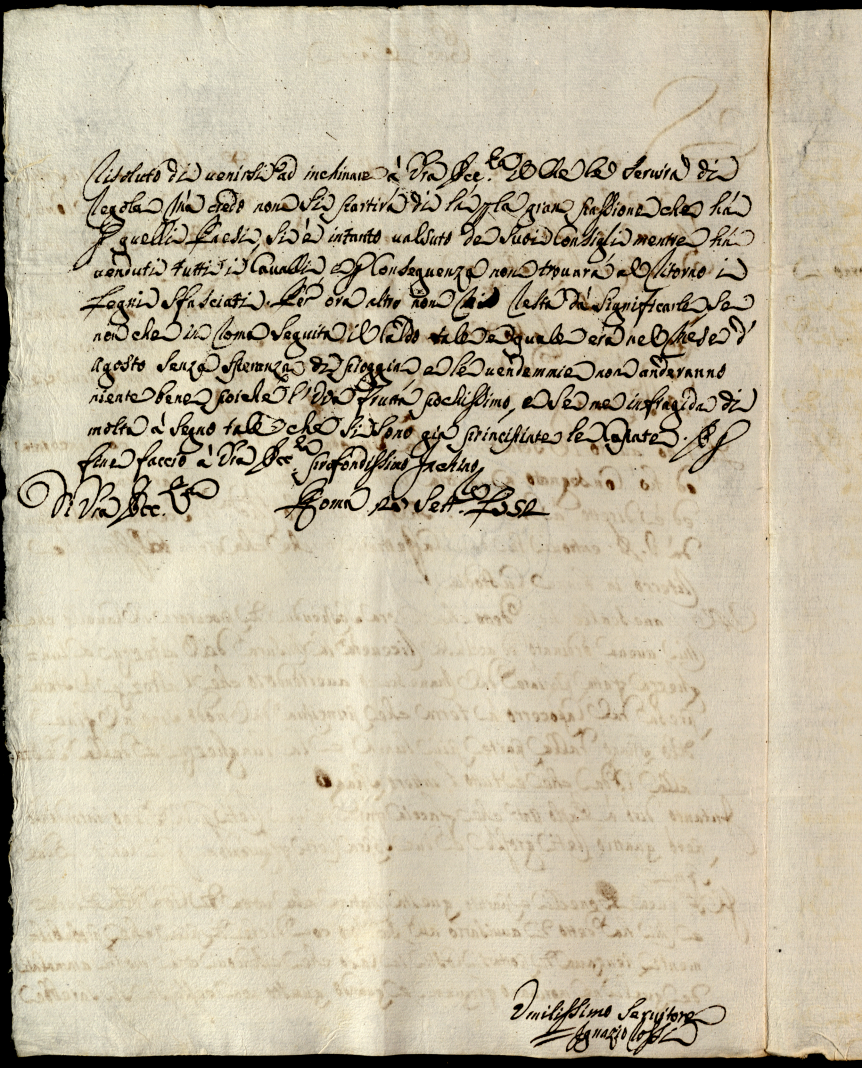 risoluto di venirsi ad inchinare à Vra Ecc.za il che le servirà di
regola, mà credo non si partirà di là p la gran passione che hà
p quelli Paesi, si è intanto valsuto de suoi Consigli mentre hà
venduti tutti i Cavalli e p Conseguenza non trovarà al ritorno i
Legni sfasciati. Per ora altro non resta da significarle se
non che in Roma seguita il caldo tale e quale era nel Mese d'
Agosto senza speranza di pioggia e le vendemmie non anderanno
niente bene poiche l'Uva frutta pochissimo, e se ne infragida di
molta à segno tale che si sono già principiate le
fine faccio à Vra Ecc.za profondissimo Inchino
Di Vra Ecc.za Roma 20 Sett.e
Umilissimo Servitore
Ignazio Rossi